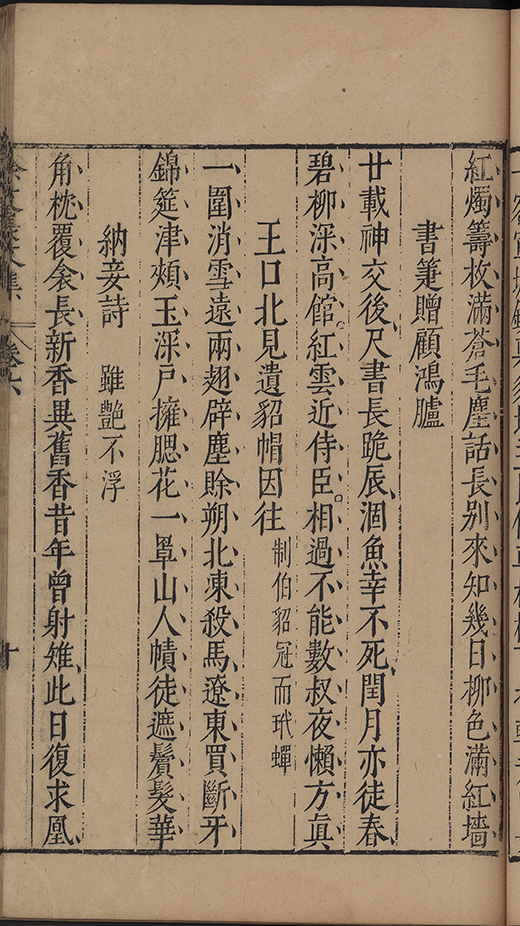 紅燭籌枚滿蒼毛麈話長別來知幾日柳色滿紅墻
書箑贈顧鴻臚
廿載神交後尺書長跪辰涸魚幸不死閏月亦徒春
碧柳深高館紅雲近侍臣相過不能數叔夜懶方眞
王口北見遺貂帽因往 制伯貂冠而玳蟬
一圍消雪遠兩翅辟塵賒朔北凍殺馬遼東買斷牙
錦筵津頰玉深戸擁腮花一罩山人幘徒遮鬢髮華
納妾詩 雖艷不浮
角枕覆衾長新香異舊香昔年曾射雉此日復求凰
卷六
十